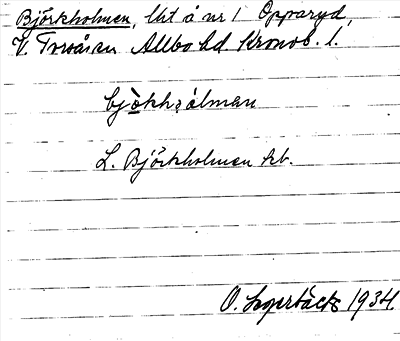 Björkholmen, lht å nr 1 Opparyd,
V. Torsås sn Allbo hd Kronob. l.
bjö̀kh₂ålman
L. Björkholmen kb.
O. Lagerbäck 1934.